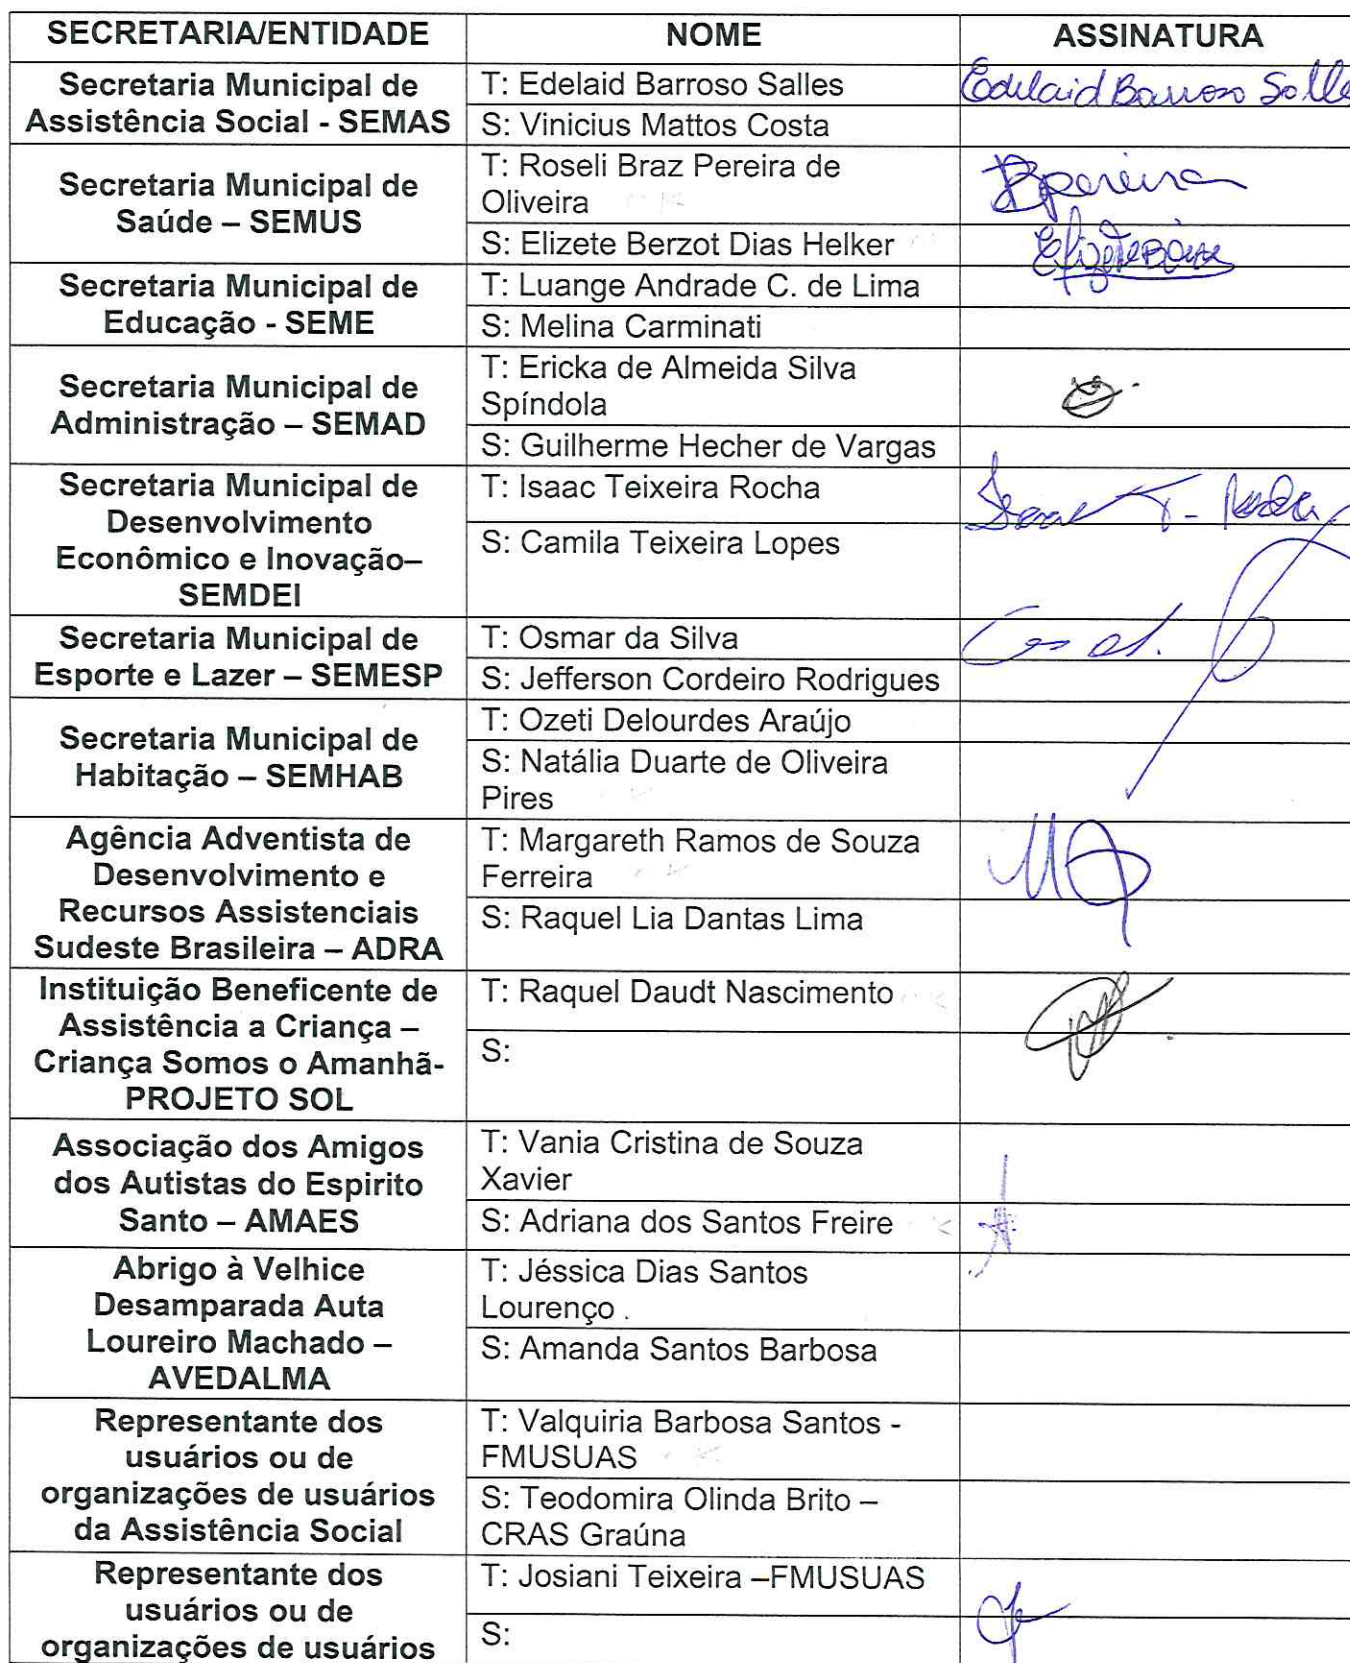 SECRETARIA/ENTIDADE NOME ASSINATURA
Secretaria Municipal de
Assistência Social - SEMAS
T: Edelaid Barroso Salles
Edelaid Barroso Salle
S: Vinicius Mattos Costa
Secretaria Municipal de
Saúde – SEMUS
T: Roseli Braz Pereira de
Oliveira
BPereira
S: Elizete Berzot Dias Helker
Secretaria Municipal de
Educação - SEME
T: Luange Andrade C. de Lima
S: Melina Carminati
Secretaria Municipal de
Administração – SEMAD
T: Ericka de Almeida Silva
Spíndola
S: Guilherme Hecher de Vargas
Secretaria Municipal de
Desenvolvimento
Econômico e Inovação–
SEMDEI
T: Isaac Teixeira Rocha
Isaac T. Rocha
S: Camila Teixeira Lopes
Secretaria Municipal de
Esporte e Lazer – SEMESP
T: Osmar da Silva
S: Jefferson Cordeiro Rodrigues
Secretaria Municipal de
Habitação – SEMHAB
T: Ozeti Delourdes Araújo
S: Natália Duarte de Oliveira
Pires
Agência Adventista de
Desenvolvimento e
Recursos Assistenciais
Sudeste Brasileira – ADRA
T: Margareth Ramos de Souza
Ferreira
S: Raquel Lia Dantas Lima
Instituição Beneficente de
Assistência a Criança –
Criança Somos o Amanhã-
PROJETO SOL
T: Raquel Daudt Nascimento
S:
Associação dos Amigos
dos Autistas do Espirito
Santo – AMAES
T: Vania Cristina de Souza
Xavier
S: Adriana dos Santos Freire
Abrigo à Velhice
Desamparada Auta
Loureiro Machado –
AVEDALMA
T: Jéssica Dias Santos
Lourenço .
S: Amanda Santos Barbosa
Representante dos
usuários ou de
organizações de usuários
da Assistência Social
T: Valquiria Barbosa Santos -
FMUSUAS
S: Teodomira Olinda Brito –
CRAS Graúna
Representante dos
usuários ou de
organizações de usuários
T: Josiani Teixeira –FMUSUAS
S: